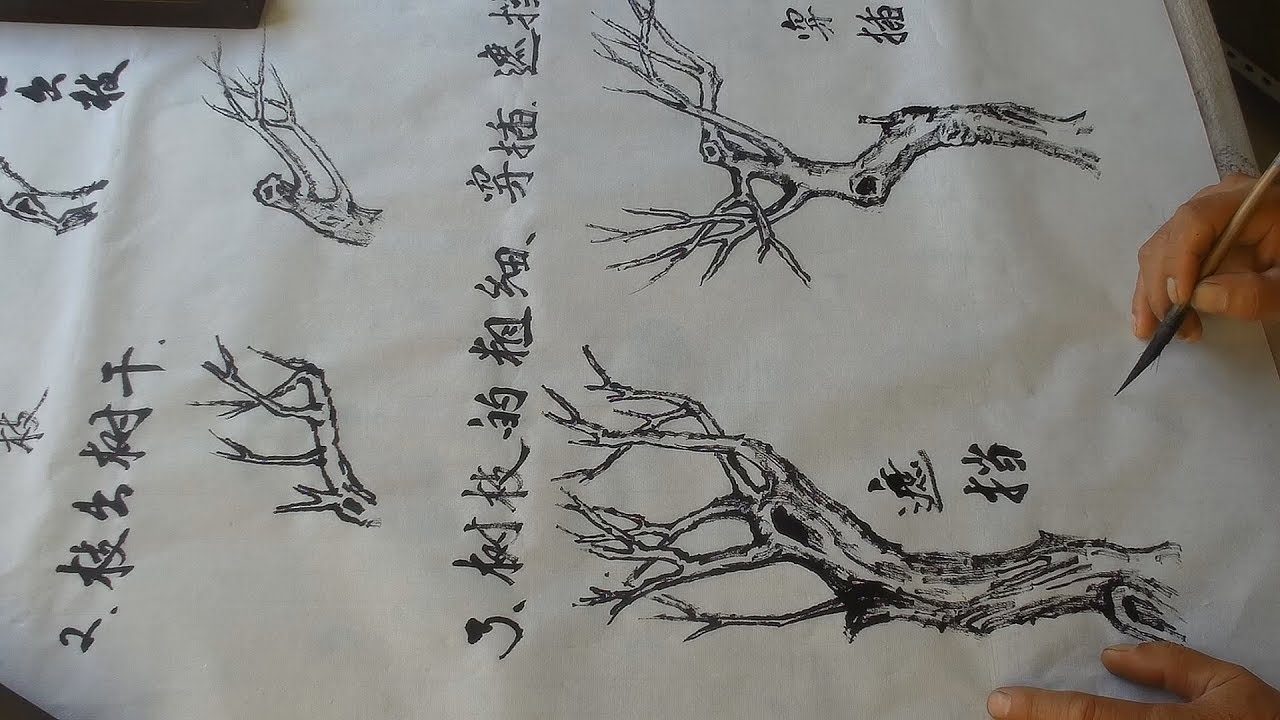 枝
出枝
2、枝出树干.
3、树枝的粗细、穿插.遮挡
遮挡
穿插